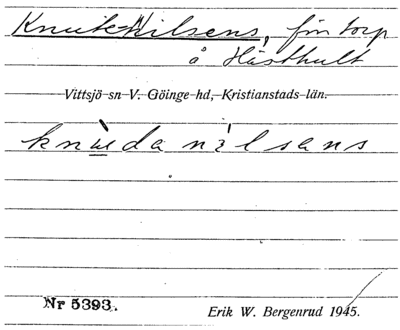 Knut-Nilsens, förr torp
å Hästhult
Vittsjö sn V. Göinge hd, Kristianstads län.
knuda nilsans
Nr 5393.
Erik W. Bergenrud 1945.